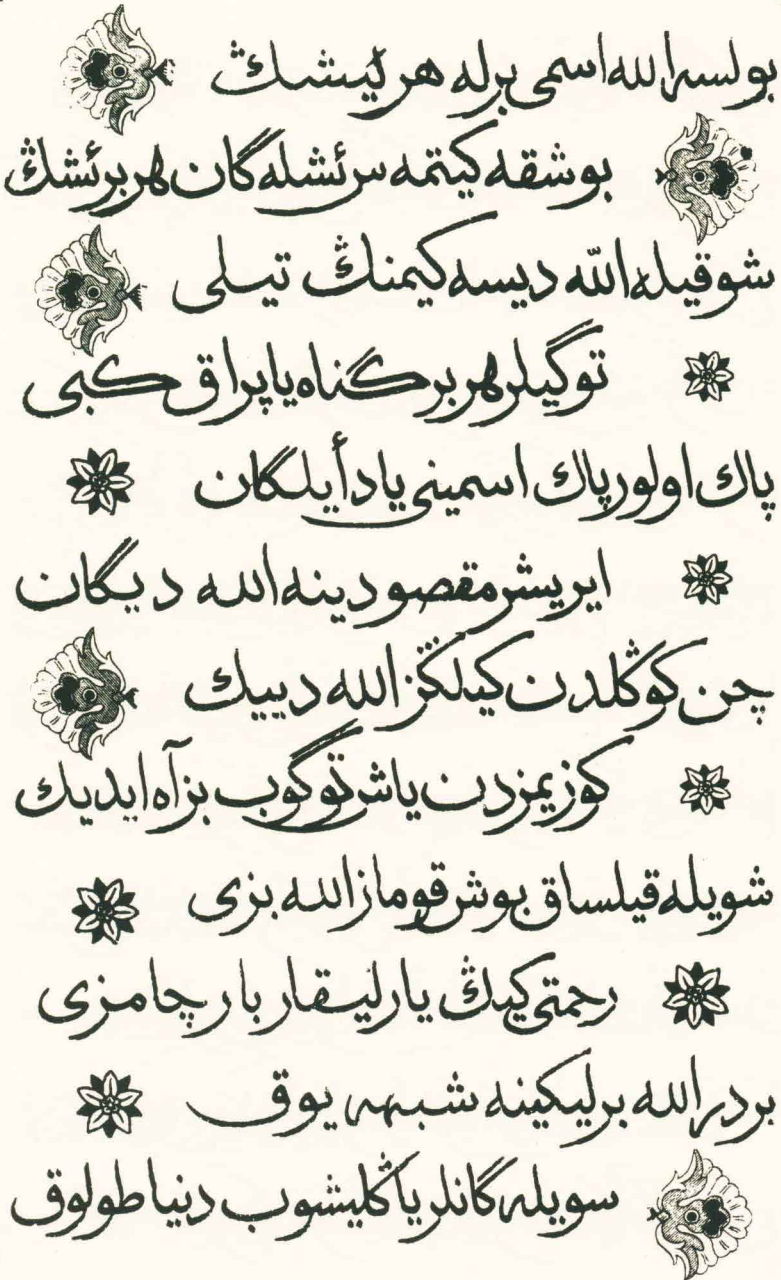 بولسه الله اسمی برله هر ئیشڭ
بوشقه کیتمه س ئشله گان هر بر ئشڭ
شوقیله الله دیسه کیمنڭ تیلی
توگیلر هر بر گناه یاپراق کبی
پاك اولور پاك اسمینی یاد أیلگان
ایریشر مقصودینه الله دیگان
چن کوڭلدن کیلکز الله دییك
کوزیمزدن یاش توگوب بز آه ایدیك
شویله قیلساق بوش قوماز الله بزی
رحمتی کیڭ یارلیقار بارچامزی
بردر الله برلیکینه شبهه یوق
سویله گانلر یاڭلیشوب دنیا طولوق